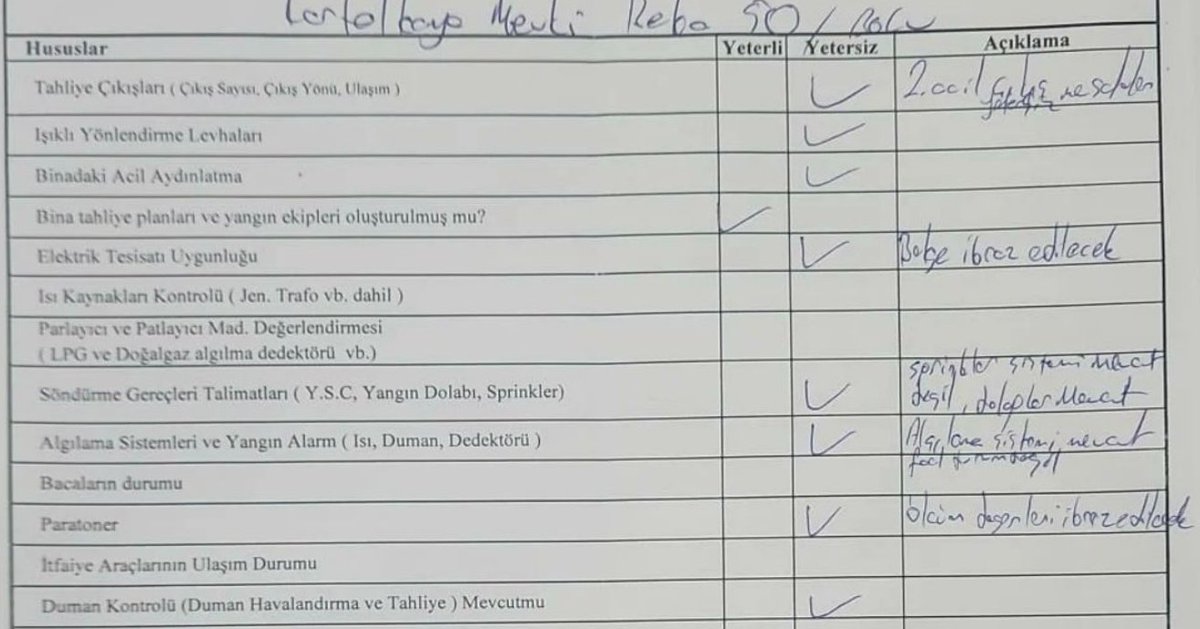 Mevki 50 / Bolu
Hususlar Yeterli Yetersiz Açıklama
Tahliye Çıkışları ( Çıkış Sayısı, Çıkış Yönü, Ulaşım ) 2. acil çıkış
Işıklı Yönlendirme Levhaları
Binadaki Acil Aydınlatma
Bina tahliye planları ve yangın ekipleri oluşturulmuş mu?
Elektrik Tesisatı Uygunluğu Belge ibraz edilecek
Isı Kaynakları Kontrolü ( Jen. Trafo vb. dahil )
Parlayıcı ve Patlayıcı Mad. Değerlendirmesi
( LPG ve Doğalgaz algılma dedektörü vb.)
sprinkler sistemi mevcut
Söndürme Gereçleri Talimatları ( Y.S.C, Yangın Dolabı, Sprinkler) değil, dolaplar Mevcut
Algılama Sistemleri ve Yangın Alarm ( Isı, Duman, Dedektörü ) Algılama sistemi mevcut
faal durumda değil
Bacaların durumu
Paratoner ölçüm değerleri ibraz edilecek
İtfaiye Araçlarının Ulaşım Durumu
Duman Kontrolü (Duman Havalandırma ve Tahliye ) Mevcutmu